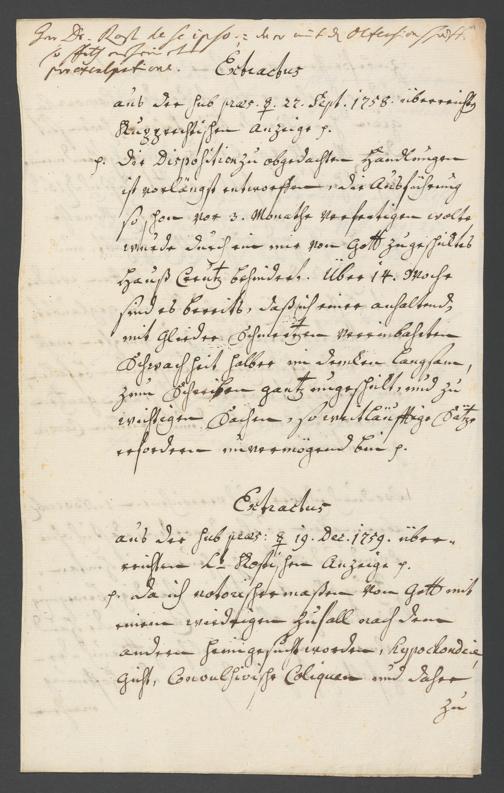 Hr. Dr. Rost de se ipso
Extractus
aus der sub præs. d. 27. Sept. 1758. überreichten
Rupprechtischen Anzeige p.
p. Die Disposition zu obgedachten Handlungen
ist vorlängst entworffen, die Ausführung
so schon vor 3. Monathe verfertigen wolte
wurde durch ein mir von Gott zugeschicktes
Hauß Creutz behindert. Über 14. Woche
sind es bereits, daß ich einer anhaltend,
mit Glieder Schmertzen vereinbahrten
Schwachheit halber im denken langsam,
zum Schreiben gantz ungeschickt, und zu
wichtigen Sachen, so weitläufftige Sätze
erfordern unvermögend bin p.
Extractus
aus der sub præs: d. 19. Dec. 1759. über-
reichten Rostischen Anzeige p.
p. Da ich notorischermaßen von Gott mit
einem wiedrigen Zufall nach dem
andern heimgesucht worden, Hypochondrie,
Gicht, Convulsivische Coliquen und daher
zu